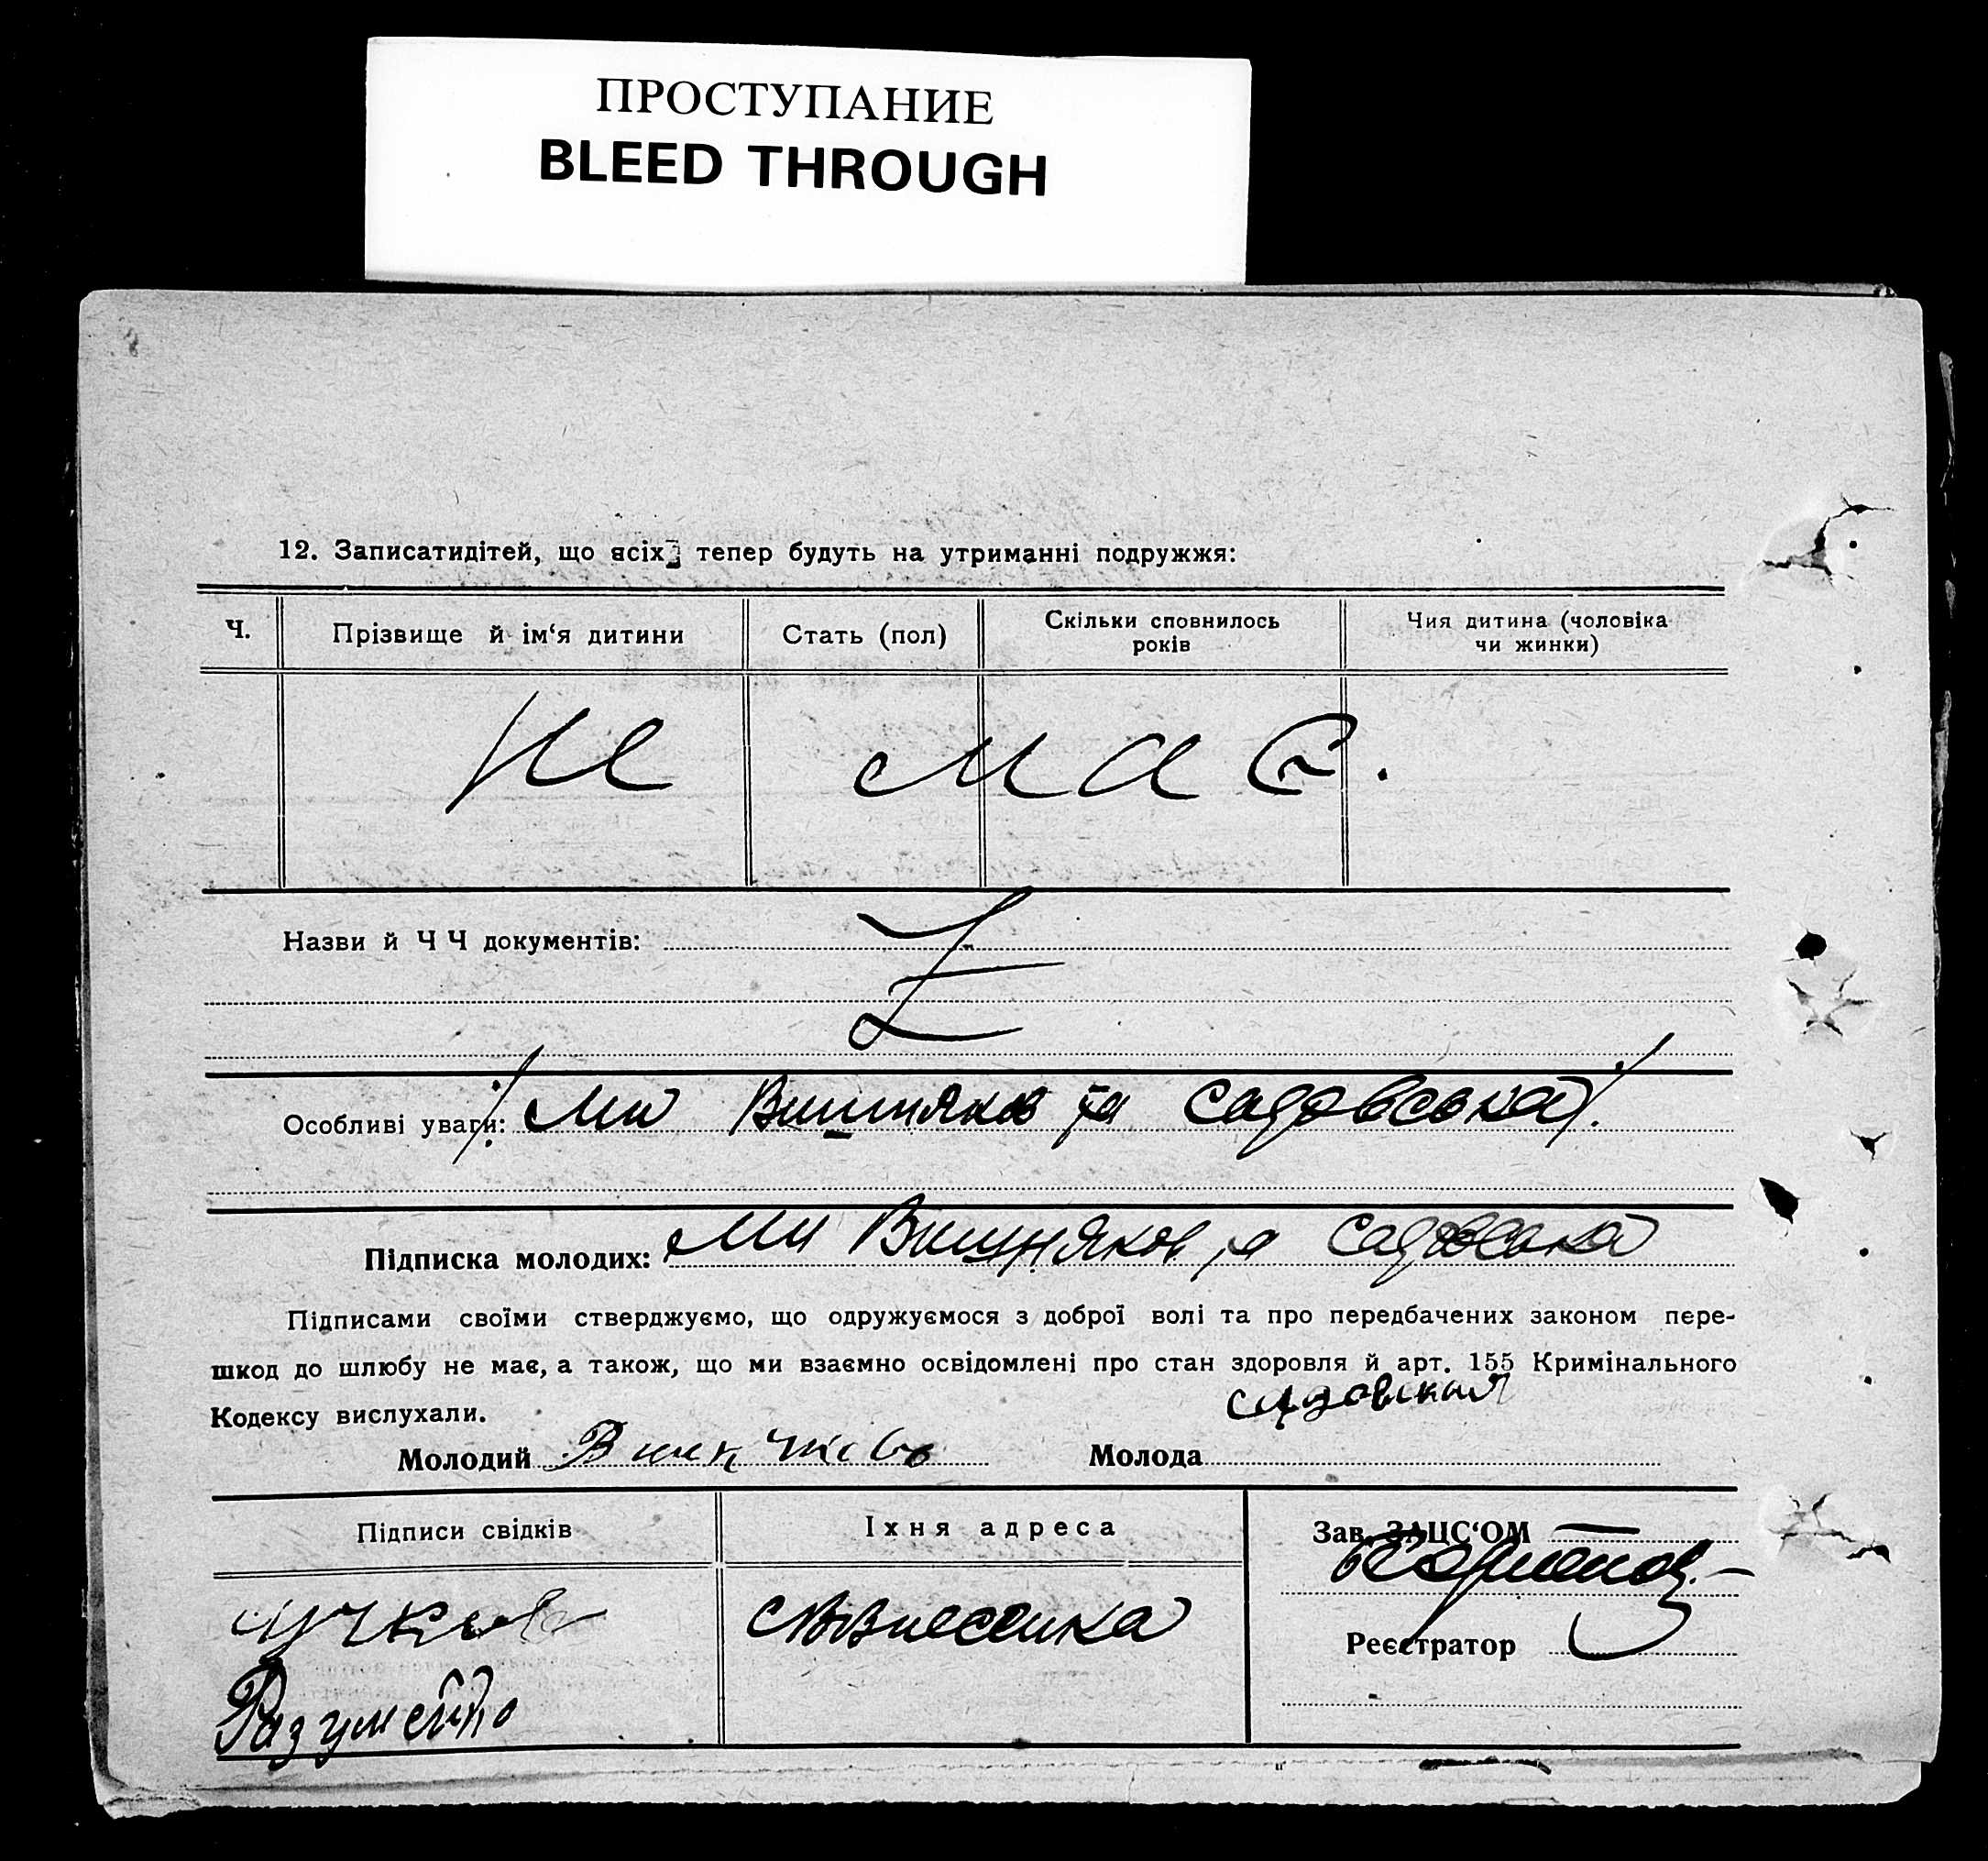 ПРОСТУПАНИЕ
BLEED THROUGH
12. Записатидітей, що всіх тепер будуть на утриманні подружжя:
Ч.
Прізвище й ім‘я дитини
Стать (пол)
Скільки сповнилось
років
Чия дитина (чоловіка
чи жинки)
не має.
Назви й Ч Ч документів:
Z
Особливі уваги: Ми Вишняков та Садовська
Підписка молодих: Ми Вишняков та Садовська
Підписами своїми стверджуємо, що одружуємося з доброї волі та про передбачених законом пере-
шкод до шлюбу не має, а також, що ми взаємно освідомлені про стан здоровля й арт. 155 Кримінального
Кодексу вислухали.
Садовская
Молодий
Молода
Підписи свідків
Їхня адреса
Зав. ЗАЦС‘ОМ
Реєстратор